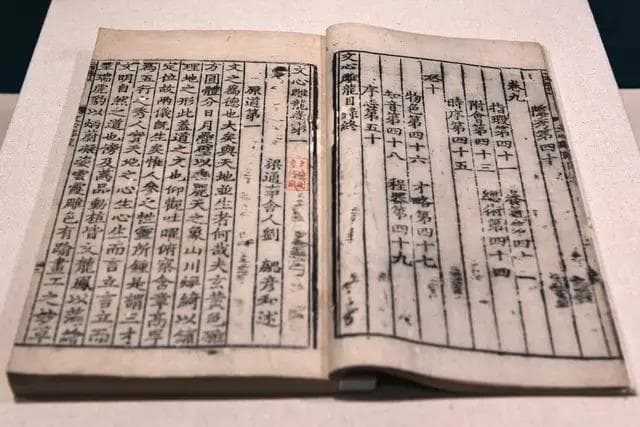 隱秀第四十
卷九
指瑕第四十一 養氣第四十二
附會第四十三 總術第四十四
時序第四十五
卷十
物色第四十六 才略第四十七
知音第四十八 程器第四十九
序志第五十
文心雕龍目錄終
文心雕龍卷第一
梁通事舍人劉 勰彦和述
原道第一
文之為德也大矣與天地並生者何哉夫玄黃色雜
方圓體分日月疊璧以垂麗天之象山川煥綺以鋪
理地之形此蓋道之文也仰觀吐曜俯察含章高卑
定位故兩儀既生矣惟人參之性靈所鍾是謂三才
為五行之秀人實天地之心生心生而言立言立而
文明自然之道也傍及萬品動植皆文龍鳳以藻繪
呈瑞虎豹以炳蔚凝姿雲霞雕色有踰畫工之妙草